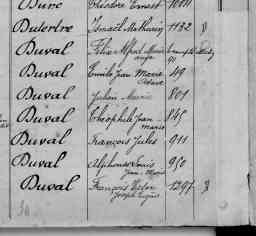 Duré Théodore Ernest
Dutertre Ismaël Mathurin 1132 8
Duval Félix Alfred Marie
ange 91
Duval Emile Jean Marie 49
Duval Julien Marie 801
Duval Théophile Jean 845
marie
Duval François Jules 911
Duval Alphonse Louis 950
Jean Marie
Duval François Victor 1297 3
Joseph Eugène